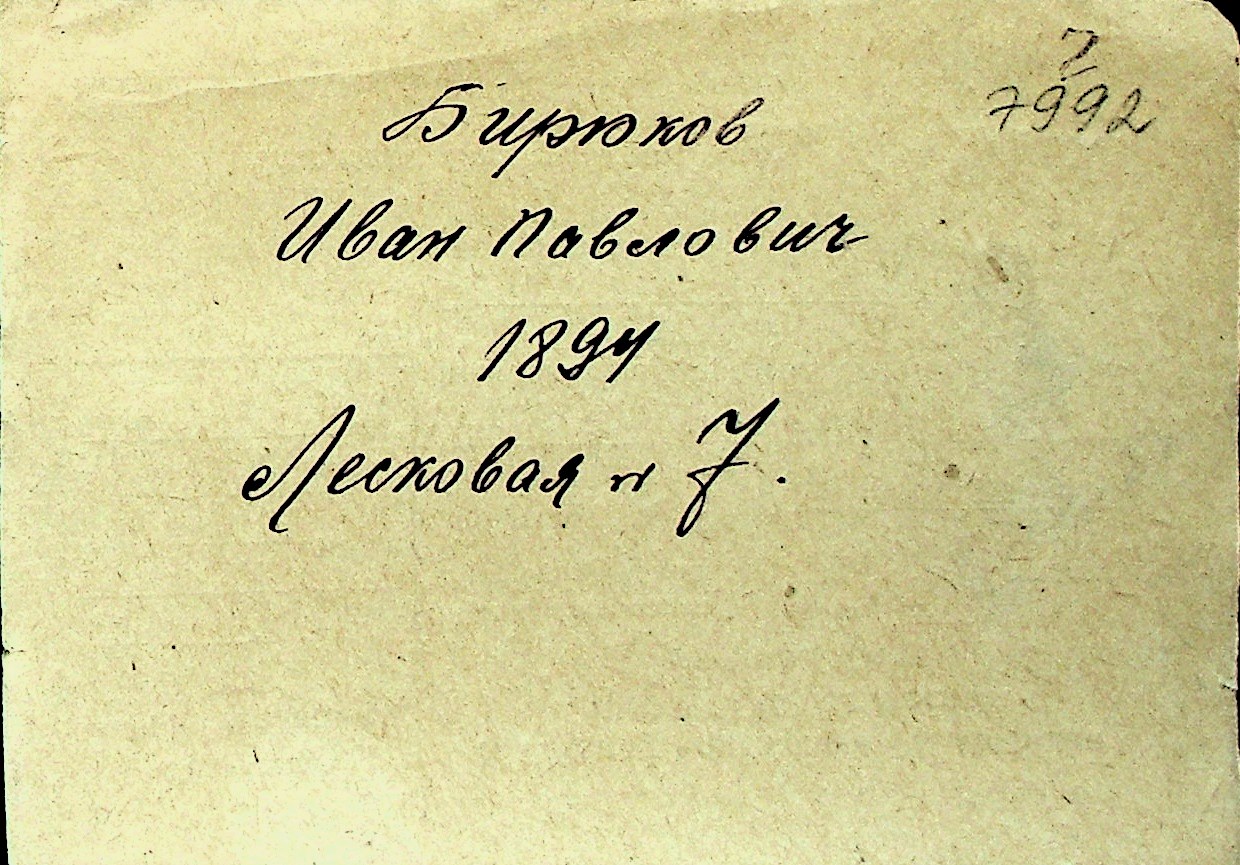 7
7992
Бирюков
Иван Павлович
1894
Лесковая н 7.